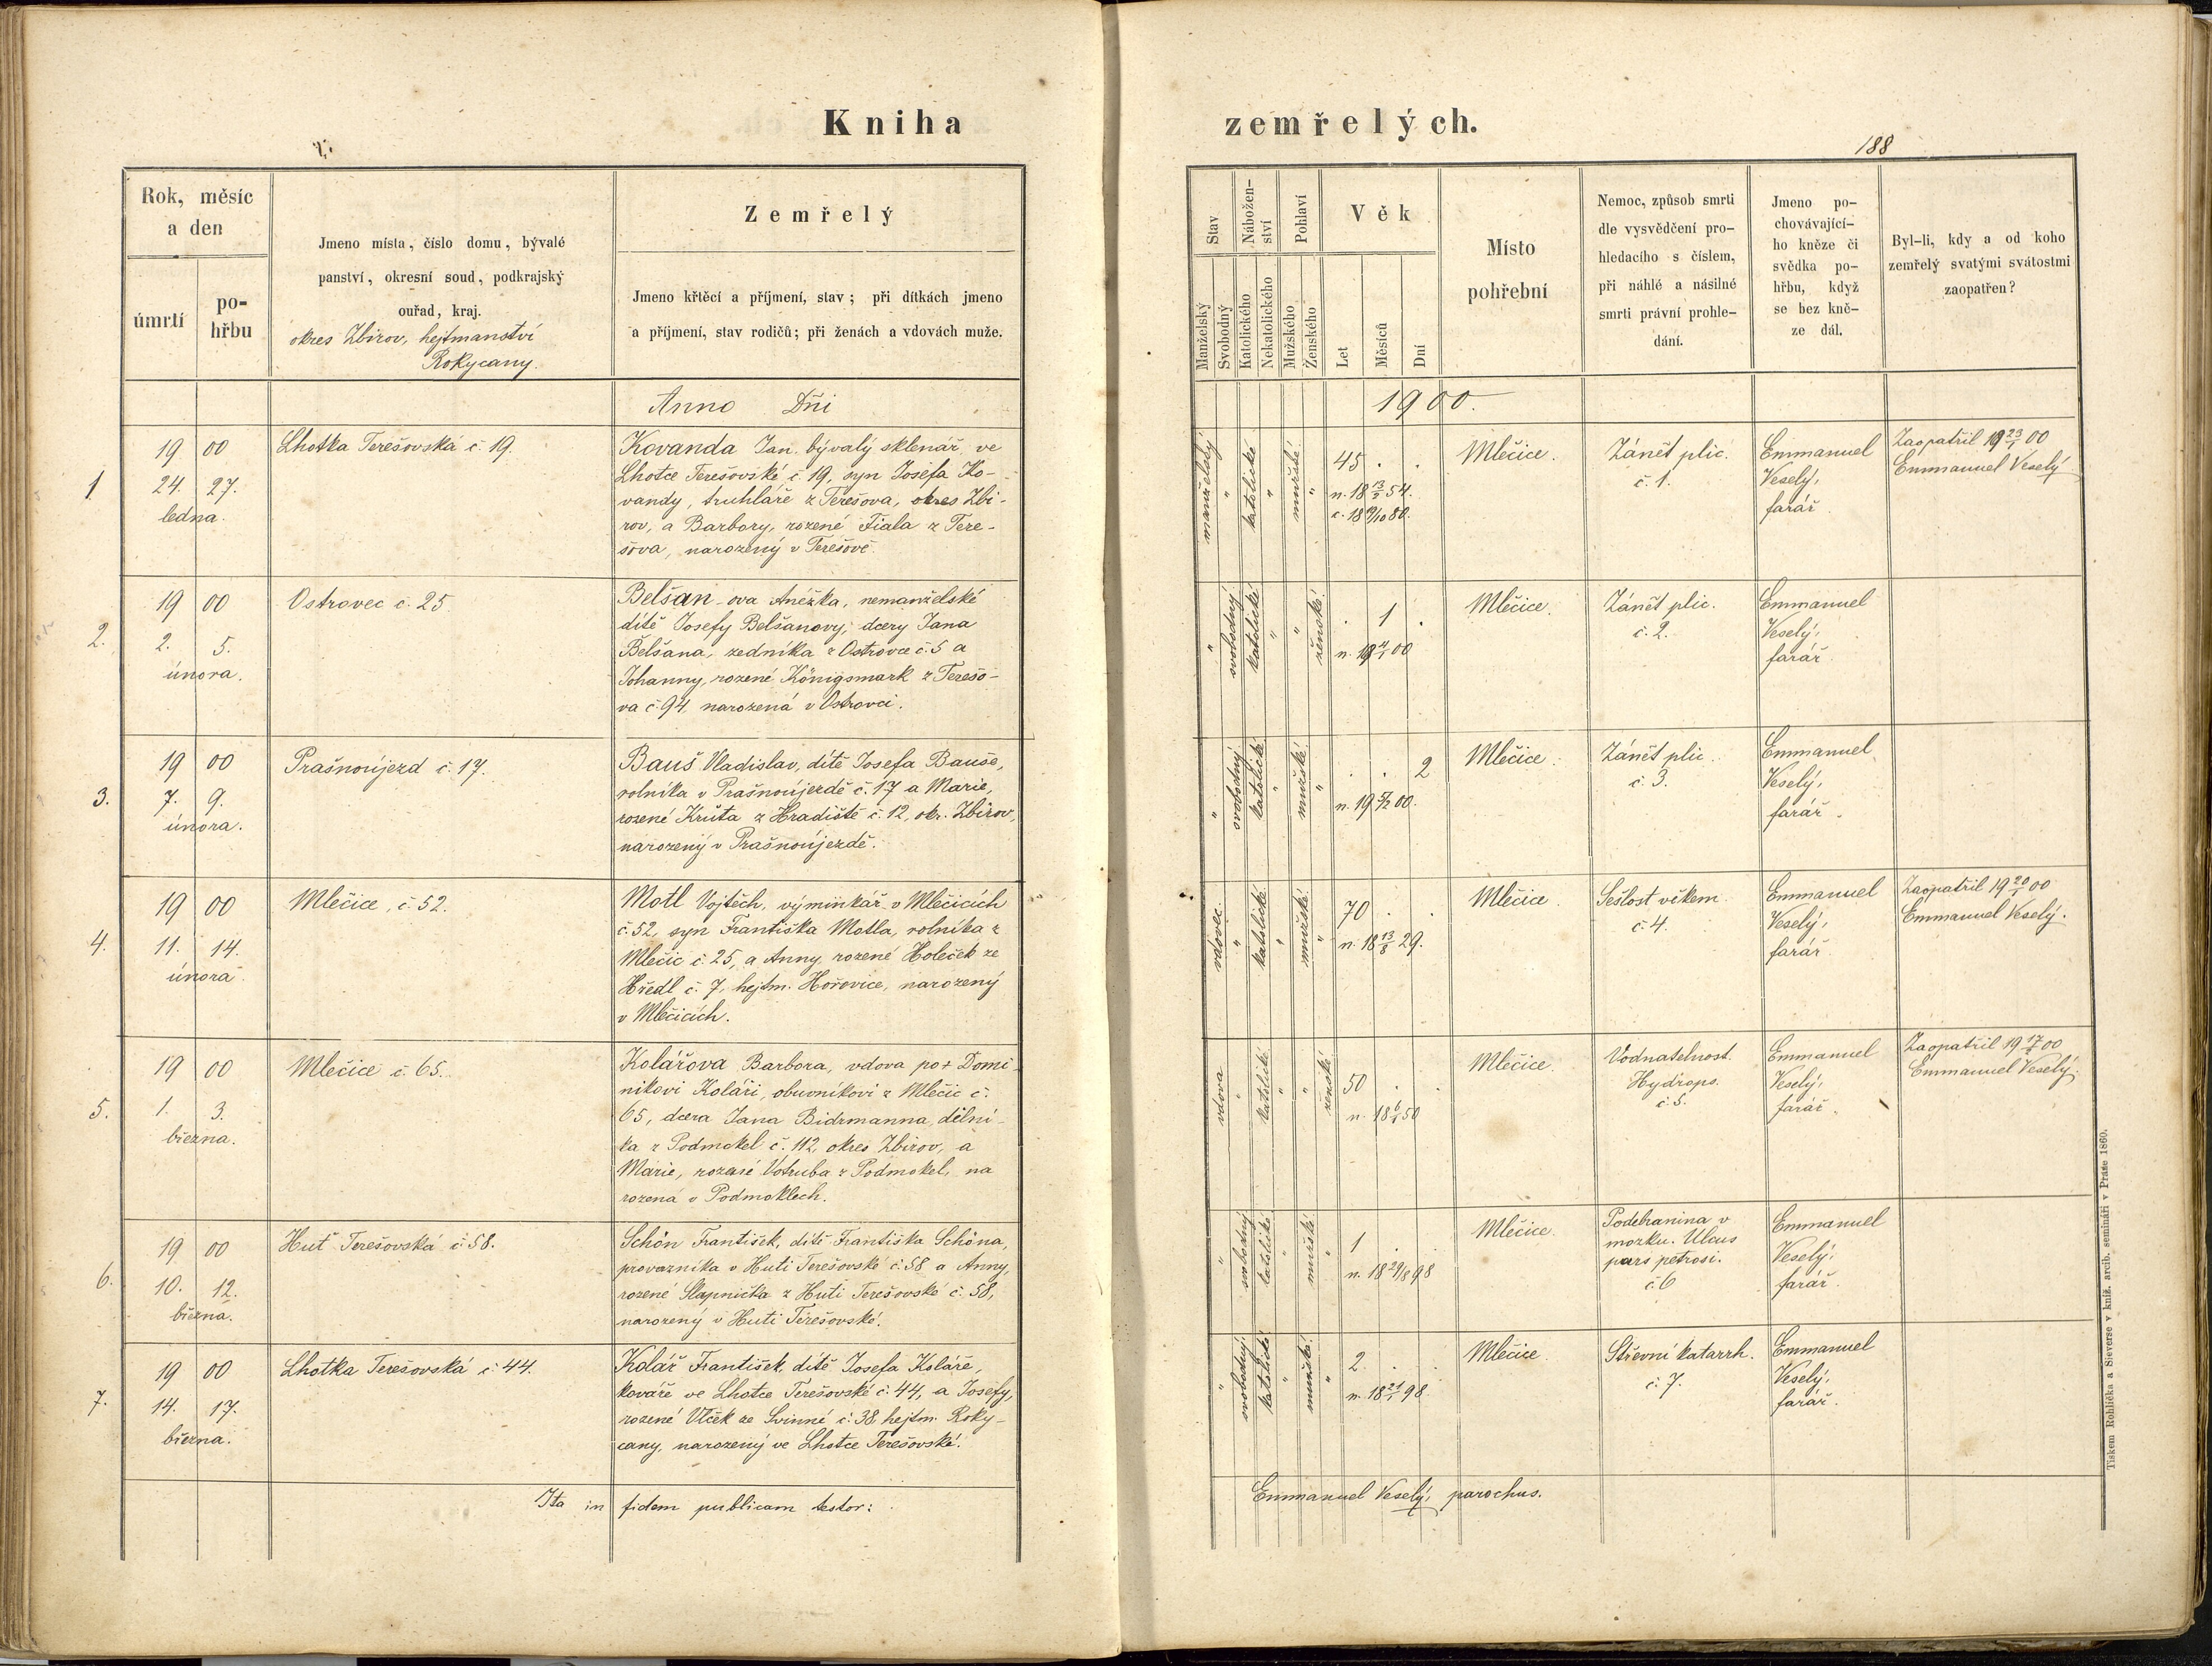 Kniha
zemřelých.
188
Rok, měsíc
a den
úmrtí
po-
hřbu
Jmeno místa, číslo domu, bývalé
panství, okresní soud, podkrajský
ouřad, kraj.
okres Zbirov, hejtmanství
Rokycany.
Zemřelý
Jmeno křtěcí a příjmení, stav; při dítkách jmeno
a příjmení, stav rodičů; při ženách a vdovách muže.
Stav
Manželský
Svobodný
Nábožen-
ství
Katolického
Nekatolického
Pohlaví
Mužského
Ženského
Věk
Let
Měsíců
Dní
Místo
pohřební
Nemoc, způsob smrti
dle vysvědčení pro-
hledacího s číslem,
při náhlé a násilné
smrti právní prohle-
dání.
Jmeno po-
chovávající-
ho kněze či
svědka po-
hřbu, když
se bez kně-
ze dál.
Byl-li, kdy a od koho
zemřelý svatými svátostmi
zaopatřen?
Anno Dñi
1900.
1
19 00
24. 27.
ledna.
Lhotka Terešovská č. 19.
Kovanda Jan. bývalý sklenář, ve
Lhotce Terešovské č. 19, syn Josefa Ko-
vandy, truhláře z Terešova, okres Zbi-
rov, a Barbory, rozené Fiala z Tere-
šova, narozený v Terešově.
manželský
"
katolické
"
mužské
"
45 . .
n. 18 13/2 54.
c. 18 9/10 80.
Mlečice.
Zánět plic.
č. 1.
Emmanuel
Veselý,
farář
Zaopatřil 19 23/1 00
Emmanuel Veselý
2.
19 00
2. 5.
února.
Ostrovec č. 25.
Belšan-ova Anežka, nemanželské
dítě Josefy Belšanovy, dcery Jana
Belšana, zedníka z Ostrovce č. 5 a
Johanny, rozené Königsmark z Terešo-
va č. 94. narozená v Ostrovci.
"
svobodný
katolické
"
"
ženské
. 1 .
Mlečice.
Zánět plic.
č. 2.
Emmanuel
Veselý,
farář.
3.
19 00
7. 9.
února.
Prašnoújezd č. 17.
Bauš Vladislav, dítě Josefa Bauše,
rolníka v Prašnoújezdě č. 17 a Marie,
rozené Kruta z Hradiště č. 12, okr. Zbirov,
narozený v Prašnoújezdě.
"
svobodný
katolické
"
mužské
"
. . 2
n. 19 5/2 00.
Mlečice.
Zánět plic.
č. 3.
Emmanuel
Veselý,
farář.
4.
19 00
11. 14.
února.
Mlečice, č. 52.
Motl Vojtěch, výminkář v Mlečicích
č. 52, syn Františka Motla, rolníka z
Mlečic č. 25, a Anny, rozené Holeček ze
Hředl č. 7, hejtm. Hořovice, narozený
v Mlečicích.
vdovec.
"
katolické
"
mužské
"
70 . .
n. 18 13/8 29.
Mlečice.
Sešlost věkem
č. 4.
Emmanuel
Veselý,
farář
Zaopatřil 19 20/1 00
Emmanuel Veselý.
5.
19 00
1. 3.
března.
Mlečice č. 65.
Kolářova Barbora, vdova po + Domi-
nikovi Koláři, obuvníkovi z Mlečic č.
65, dcera Jana Bidrmanna, dělní-
ka z Podmokel č. 112, okres Zbirov, a
Marie, rozené Votruba z Podmokel, na
rozená v Podmoklech.
vdova
"
katolické
"
"
ženské
50 . .
Mlečice.
Vodnatelnost.
Hydrops.
č. 5.
Emmanuel
Veselý,
farář.
Zaopatřil 19 17/2 00
Emmanuel Veselý.
6.
19 00
10. 12.
března.
Huť Terešovská č. 58.
Schön František, dítě Františka Schöna,
provazníka v Huti Terešovské č. 58 a Anny,
rozené Slapnička z Huti Terešovské č. 58,
narozený v Huti Terešovské.
"
svobodný
katolické
"
mužské
"
1 . .
n. 18 29/8 98
Mlečice.
Podebranina v
mozku. Ulcus
pars petrosi.
č. 6
Emmanuel
Veselý,
farář.
7.
19 00
14. 17.
března.
Lhotka Terešovská č. 44.
Kolář František, dítě Josefa Koláře,
kováře ve Lhotce Terešovské č. 44, a Josefy,
rozené Vlček ze Svinné č. 38 hejtm. Roky-
cany, narozený ve Lhotce Terešovské.
"
svobodný
katolické
"
mužské
"
2 . .
n. 18 21/1 98.
Mlečice.
Střevní katarrh.
č. 7.
Emmanuel
Veselý,
farář.
Ita in fidem publicam testor:
Emmanuel Veselý, parochus.
Tiskem Rohlíčka a Sieverse v kníž. arcib. semináři v Praze 1860.